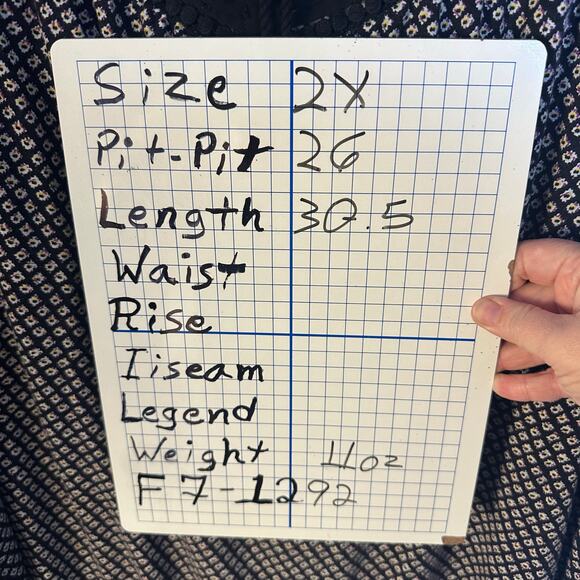 Size 2X
Pit-Pit 26
Length 30.5
Waist
Rise
Iiseam
Legend
Weight 11oz
F7-1292